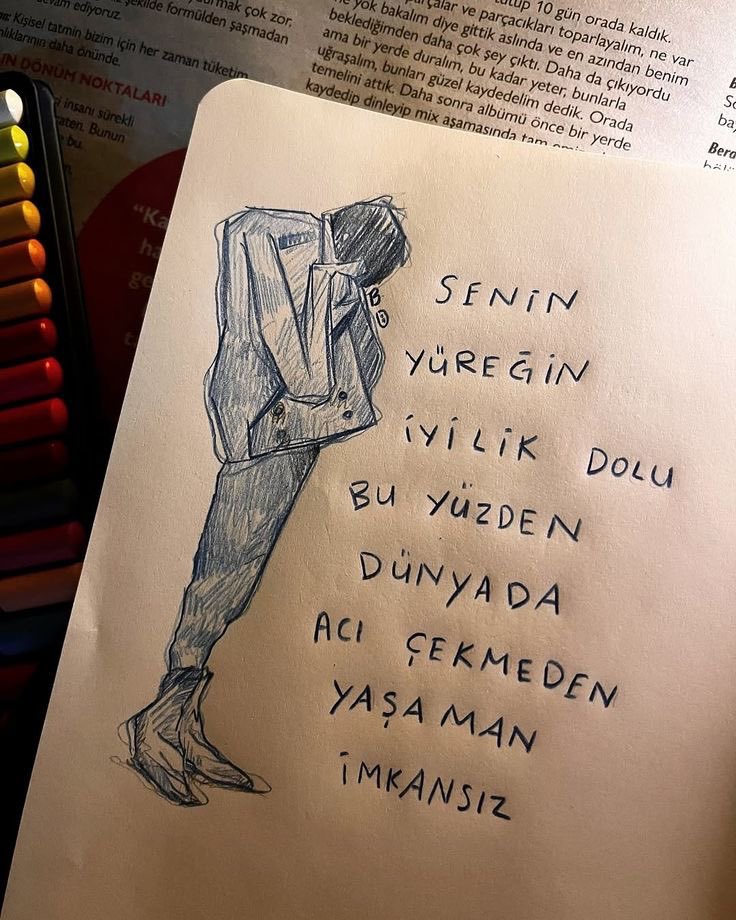 devam ediyoruz.
şekilde formülden şaşmadan
Kişisel tatmin bizim için her zaman tüketim
daha önünde.
DÖNÜM NOKTALARI
insanı sürekli
Bunun
bu.
10 gün orada kaldık.
ve parçacıkları toparlayalım, ne var
ne yok bakalım diye gittik aslında ve en azından benim
beklediğimden daha çok şey çıktı. Daha da çıkıyordu
ama bir yerde duralım, bu kadar yeter, bunlarla
uğraşalım, bunları güzel kaydedelim dedik. Orada
temelini attık. Daha sonra albümü önce bir yerde
kaydedip dinleyip mix aşamasında tam
"Ka
ha
ge
B
SENİN
YÜREĞİN
İYİLİK DOLU
BU YÜZDEN
DÜNYADA
ACI ÇEKMEDEN
YAŞAMAN
İMKANSIZ